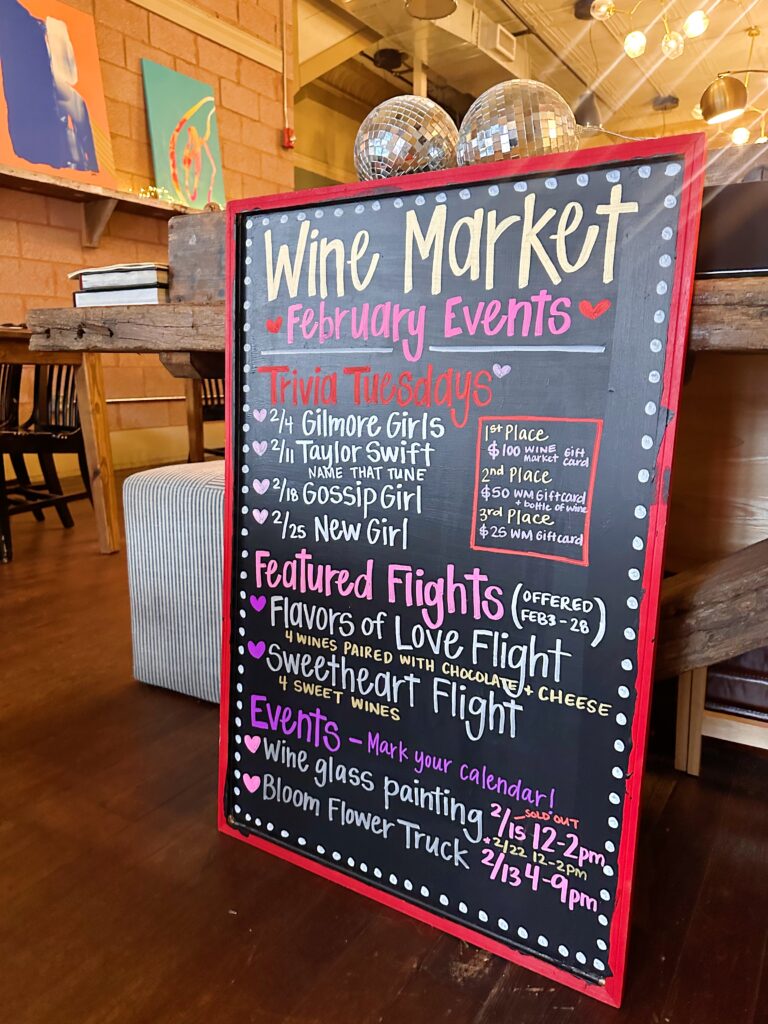 Wine Market
February Events
Trivia Tuesdays
2/4 Gilmore Girls
2/11 Taylor Swift
NAME THAT TUNE
2/18 Gossip Girl
2/25 New Girl
1st Place
$100 WINE Market Gift card
2nd Place
$50 WM Giftcard
+ bottle of wine
3rd Place
$25 WM Giftcard
Featured Flights (OFFERED FEB3-28)
Flavors of Love Flight
4 WINES PAIRED WITH CHOCOLATE + CHEESE
Sweetheart Flight
4 SWEET WINES
Events - Mark your calendar!
Wine glass painting 2/15 12-2pm
SOLD OUT
+2/22 12-2pm
Bloom Flower Truck 2/13 4-9pm